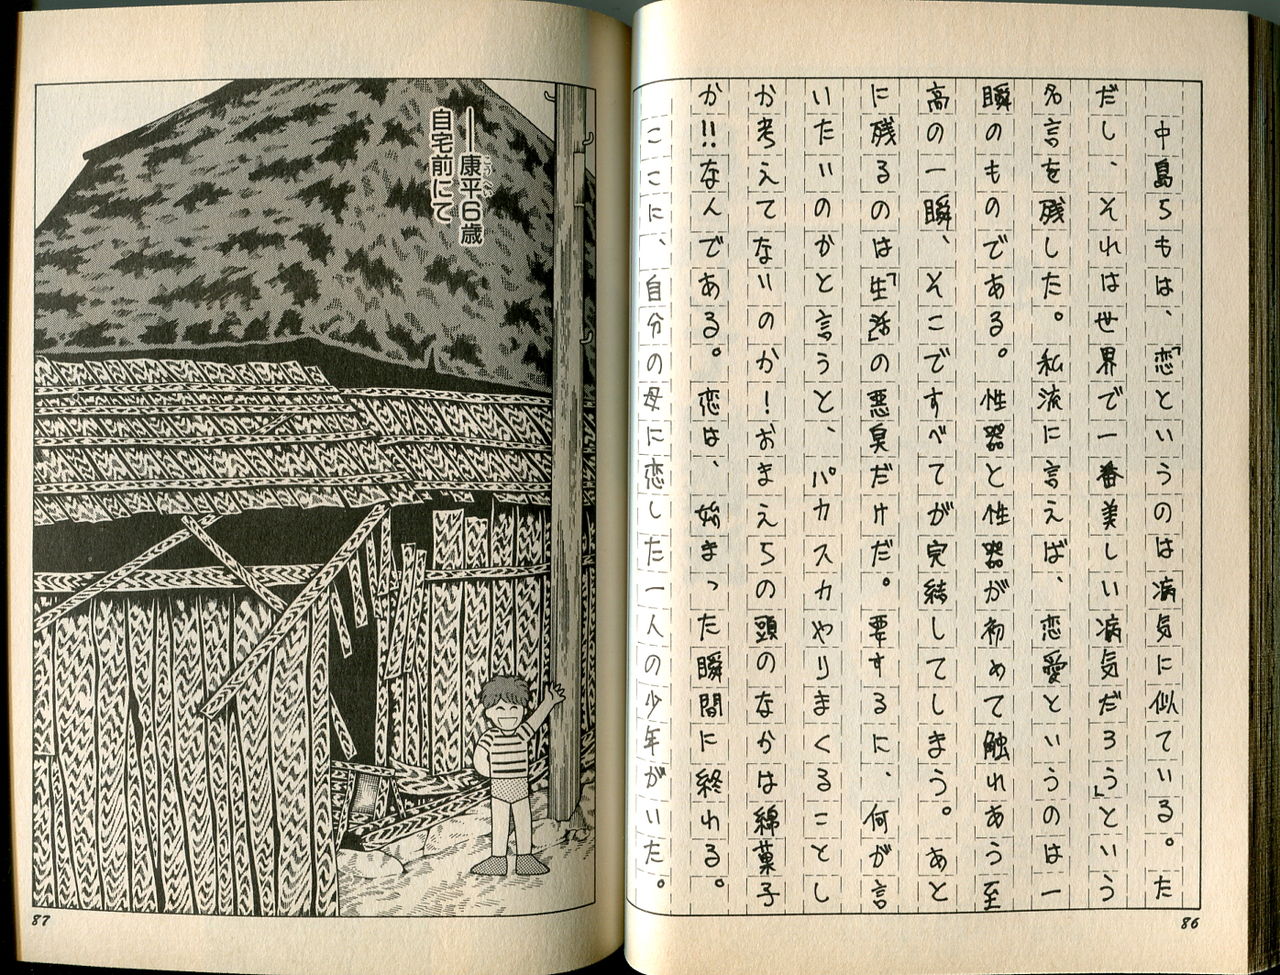 中島らもは、「恋というのは病気に似ている。た
だし、それは世界で一番美しい病気だろう」という
名言を残した。私流に言えば、恋愛というのは一
瞬のものである。性器と性器が初めて触れあう至
高の一瞬、そこですべてが完結してしまう。あと
に残るのは「生活」の悪臭だけだ。要するに、何が言
いたいのかと言うと、パカスカやりまくることし
か考えてないのか！おまえらの頭のなかは綿菓子
か!!なんである。恋は、始まった瞬間に終わる。
ここに、自分の母に恋した一人の少年がいた。
86
――康平6歳
こうへい
自宅前にて
87